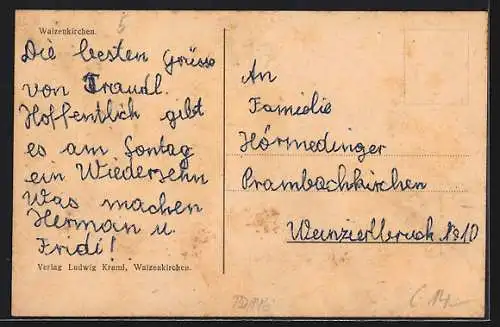 Waizenkirchen.
5
Die besten Grüsse
von Traudl.
Hoffentlich gibt
es am Sontag
ein Wiedersehn
Was machen
Herman u.
Fridi!
Verlag Ludwig Kraml, Waizenkirchen.
An
Familie
Hörmedinger
Prambachkirchen
Weinzierlbruck No 10
C 14-